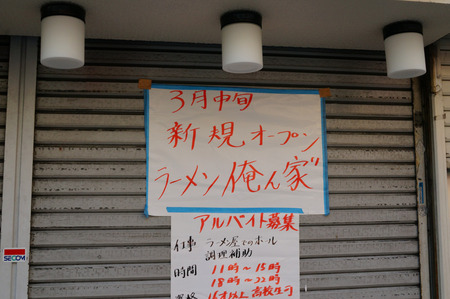 3月中旬
新規オープン
ラーメン俺ん家゛
アルバイト募集
仕事 ラーメン屋でのホール
調理補助
時間 11時～15時
18時～22時
資格 16才以上 高校生可
SECOM